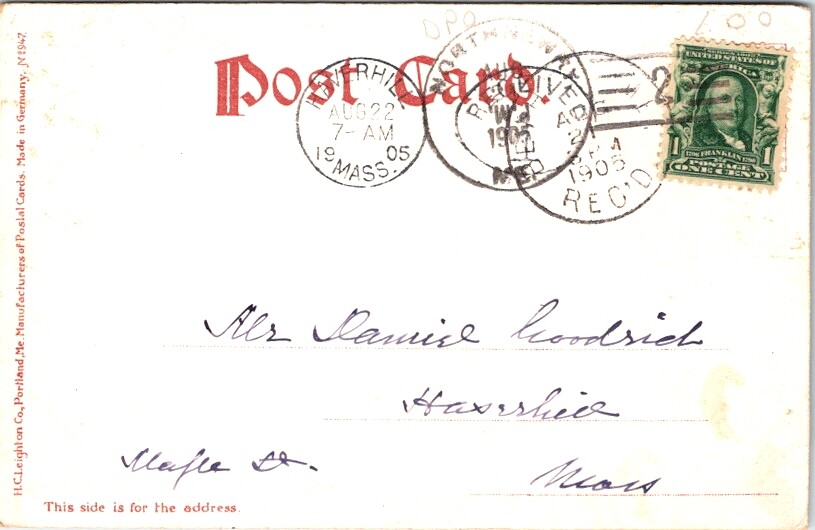 DPO
Post Card.
HAVERHILL
AUG 22
7-AM
1905
MASS.
NORTH
AUG
1905
ME.
RECEIVED
1905
REC'D
2
SERIES 1902
UNITED STATES OF
AMERICA
1790 FRANKLIN 1790
1 POSTAGE 1
ONE CENT
H.C. Leighton Co., Portland, Me. Manufacturers of Postal Cards. Made in Germany. No 947.
Mr Daniel Goodrich
Haverhill
Maple St.
Mass
This side is for the address.